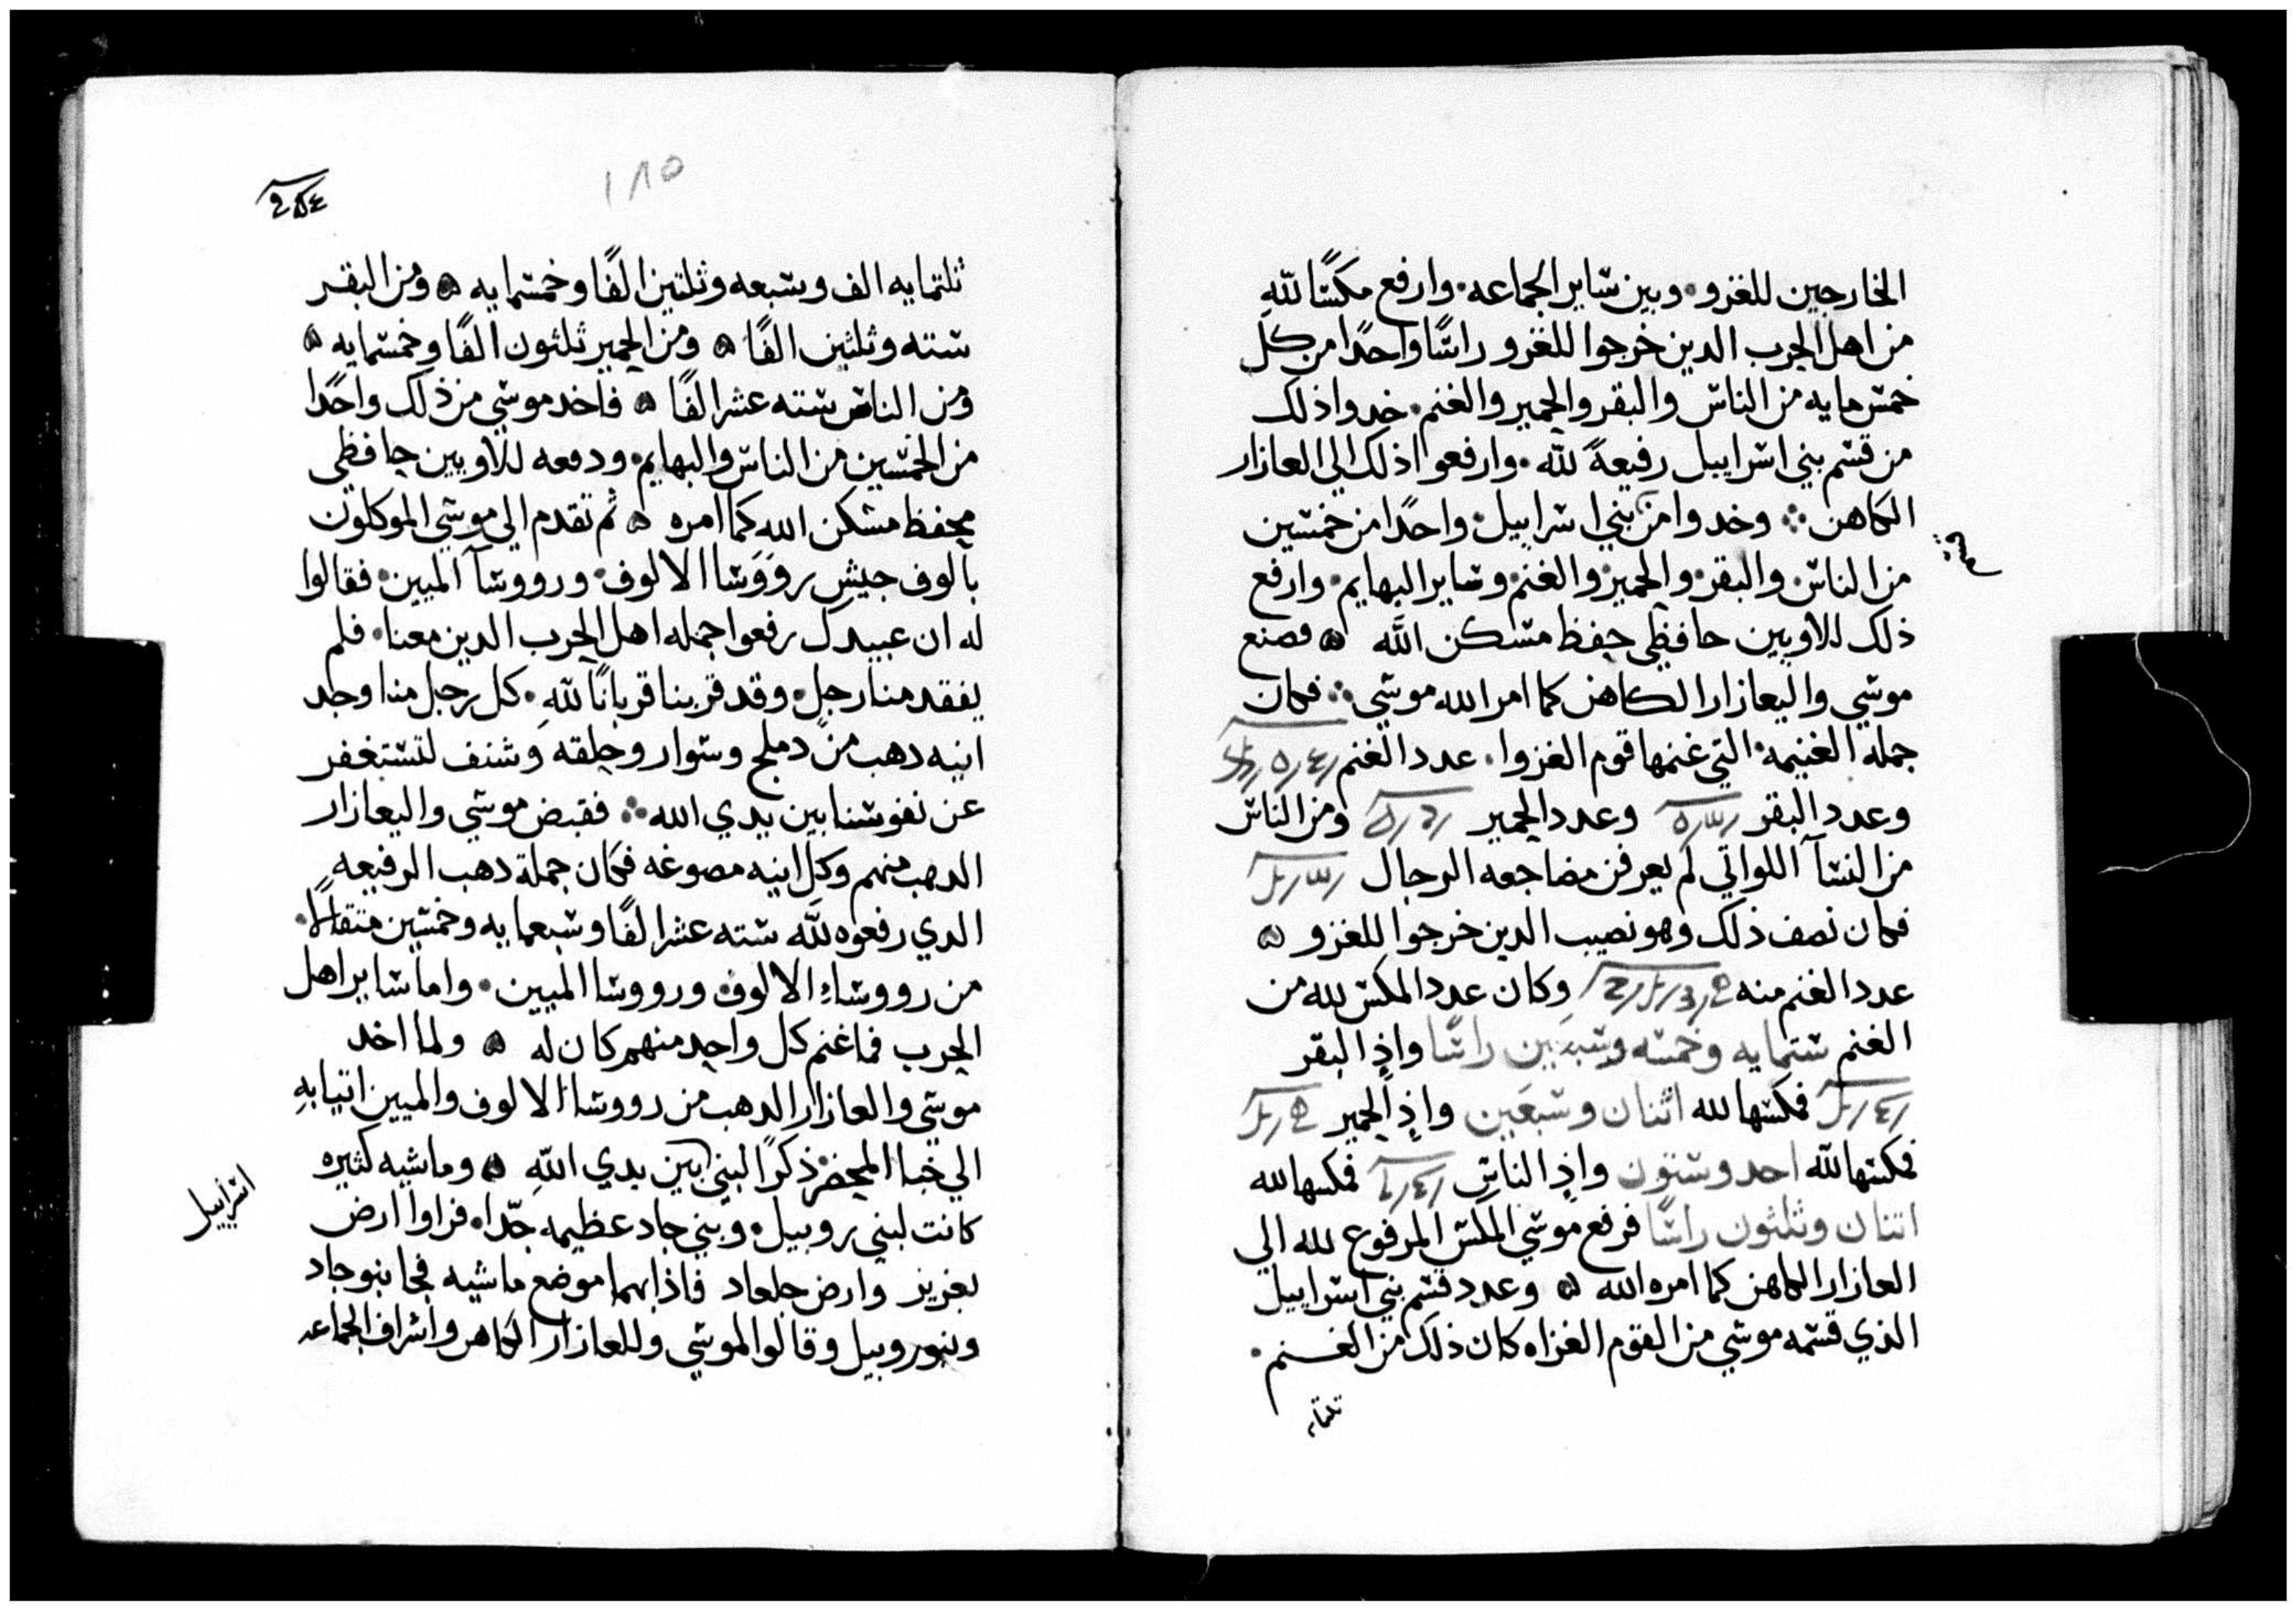 الخارجين للغزو. وبين ساير الجماعه. وارفع مكسًا لله
من اهل الحرب الدين خرجوا للغزو راسًا واحدًا من كل
خمس مايه من الناس والبقر والحمير والغنم. خدوا ذلك
من قسم بني اسراييل رفيعةً لله. وارفعوا ذلك الي العازار
الكاهن ⁘ وخدوا من بني اسراييل. واحدًا من خمسين
قسم
من الناس. والبقر. والحمير. والغنم. وساير البهايم. وارفع
ذلك للاويين حافظي حفظ مسكن الله ۞ فصنع
موسي واليعازار الكاهن كما امر الله موسي ⁘ فكان
جمله الغنيمه. التي غنمها قوم الغزوا. عدد الغنم
وعدد البقر وعدد الحمير ومن الناس
من النسآ اللواتي لم يعرفن مضاجعه الرجال
فكان نصف ذلك وهو نصيب الدين خرجوا للغزو ۞
عدد الغنم منه وكان عدد المكس لله من
الغنم ستمايه وخمسه وسبعين راسًا واذٍ البقر
فمكسها لله اثنان وسبعين واذٍ الحمير
فمكسها لله احد وستون واذٍ الناس فمكسها لله
اتنان وثلثون راسًا فرفع موسي المكس المرفوع لله الي
العازار الكاهن كما امره الله ۞ وعدد قسم بني اسراييل
الذي قسمه موسي من القوم الغزاه كان ذلك من الغنم.
ثلثمايه
١٨٥
ثلتمايه الف وسبعه وثلتين الفًا وخمسمايه ۞ ومن البقر
سته وثلثين الفًا ۞ ومن الحمير ثلثون الفًا وخمسمايه ۞
ومن الناس سته عشر الفًا ۞ فاخد موسي من ذلك واحدًا
من الخمسين من الناس والبهايم. ودفعه للاويين حافظي
محفظ مسكن الله كما امره ۞ ثم تقدم الي موسي الموكلون
بالوف جيش رووسا الالوف. ورووسآ الميين. فقالوا
له ان عبيدك رفعوا جمله اهل الحرب الدين معنا. فلم
يفقد منا رجل. وقد قربنا قربانًا لله. كل رجل منا وجد
انيه دهب من دملج وسوار وحلقه وشنف لتستغفر
عن نفوسنا بين يدي الله ⁘ فقبض موسي واليعازار
الدهب منهم وكل انيه مصوغه فكان جملة دهب الرفيعه
الدي رفعوه لله سته عشر الفًا وسبعمايه وخمسين متقالًا.
من رووساءِ الالوف ورووسا الميين. واما ساير اهل
الحرب فما غنم كل واحد منهم كان له ۞ ولما اخد
موسي والعازار الدهب من رووسا الالوف والميين اتيا بهِ
الي خبا المحضر ذكرًا لبني بين يدي اللهِ ۞ وماشيه كثيره
اسراييل
كانت لبني روبيل. وبني جاد عظيمه جدّا. فراوا ارض
يعزير وارض جلعاد فاذا بهما موضع ماشيه فجا بنو جاد
وبنو روبيل وقالوا لموسي وللعازار الكاهن واشراف الجماعه